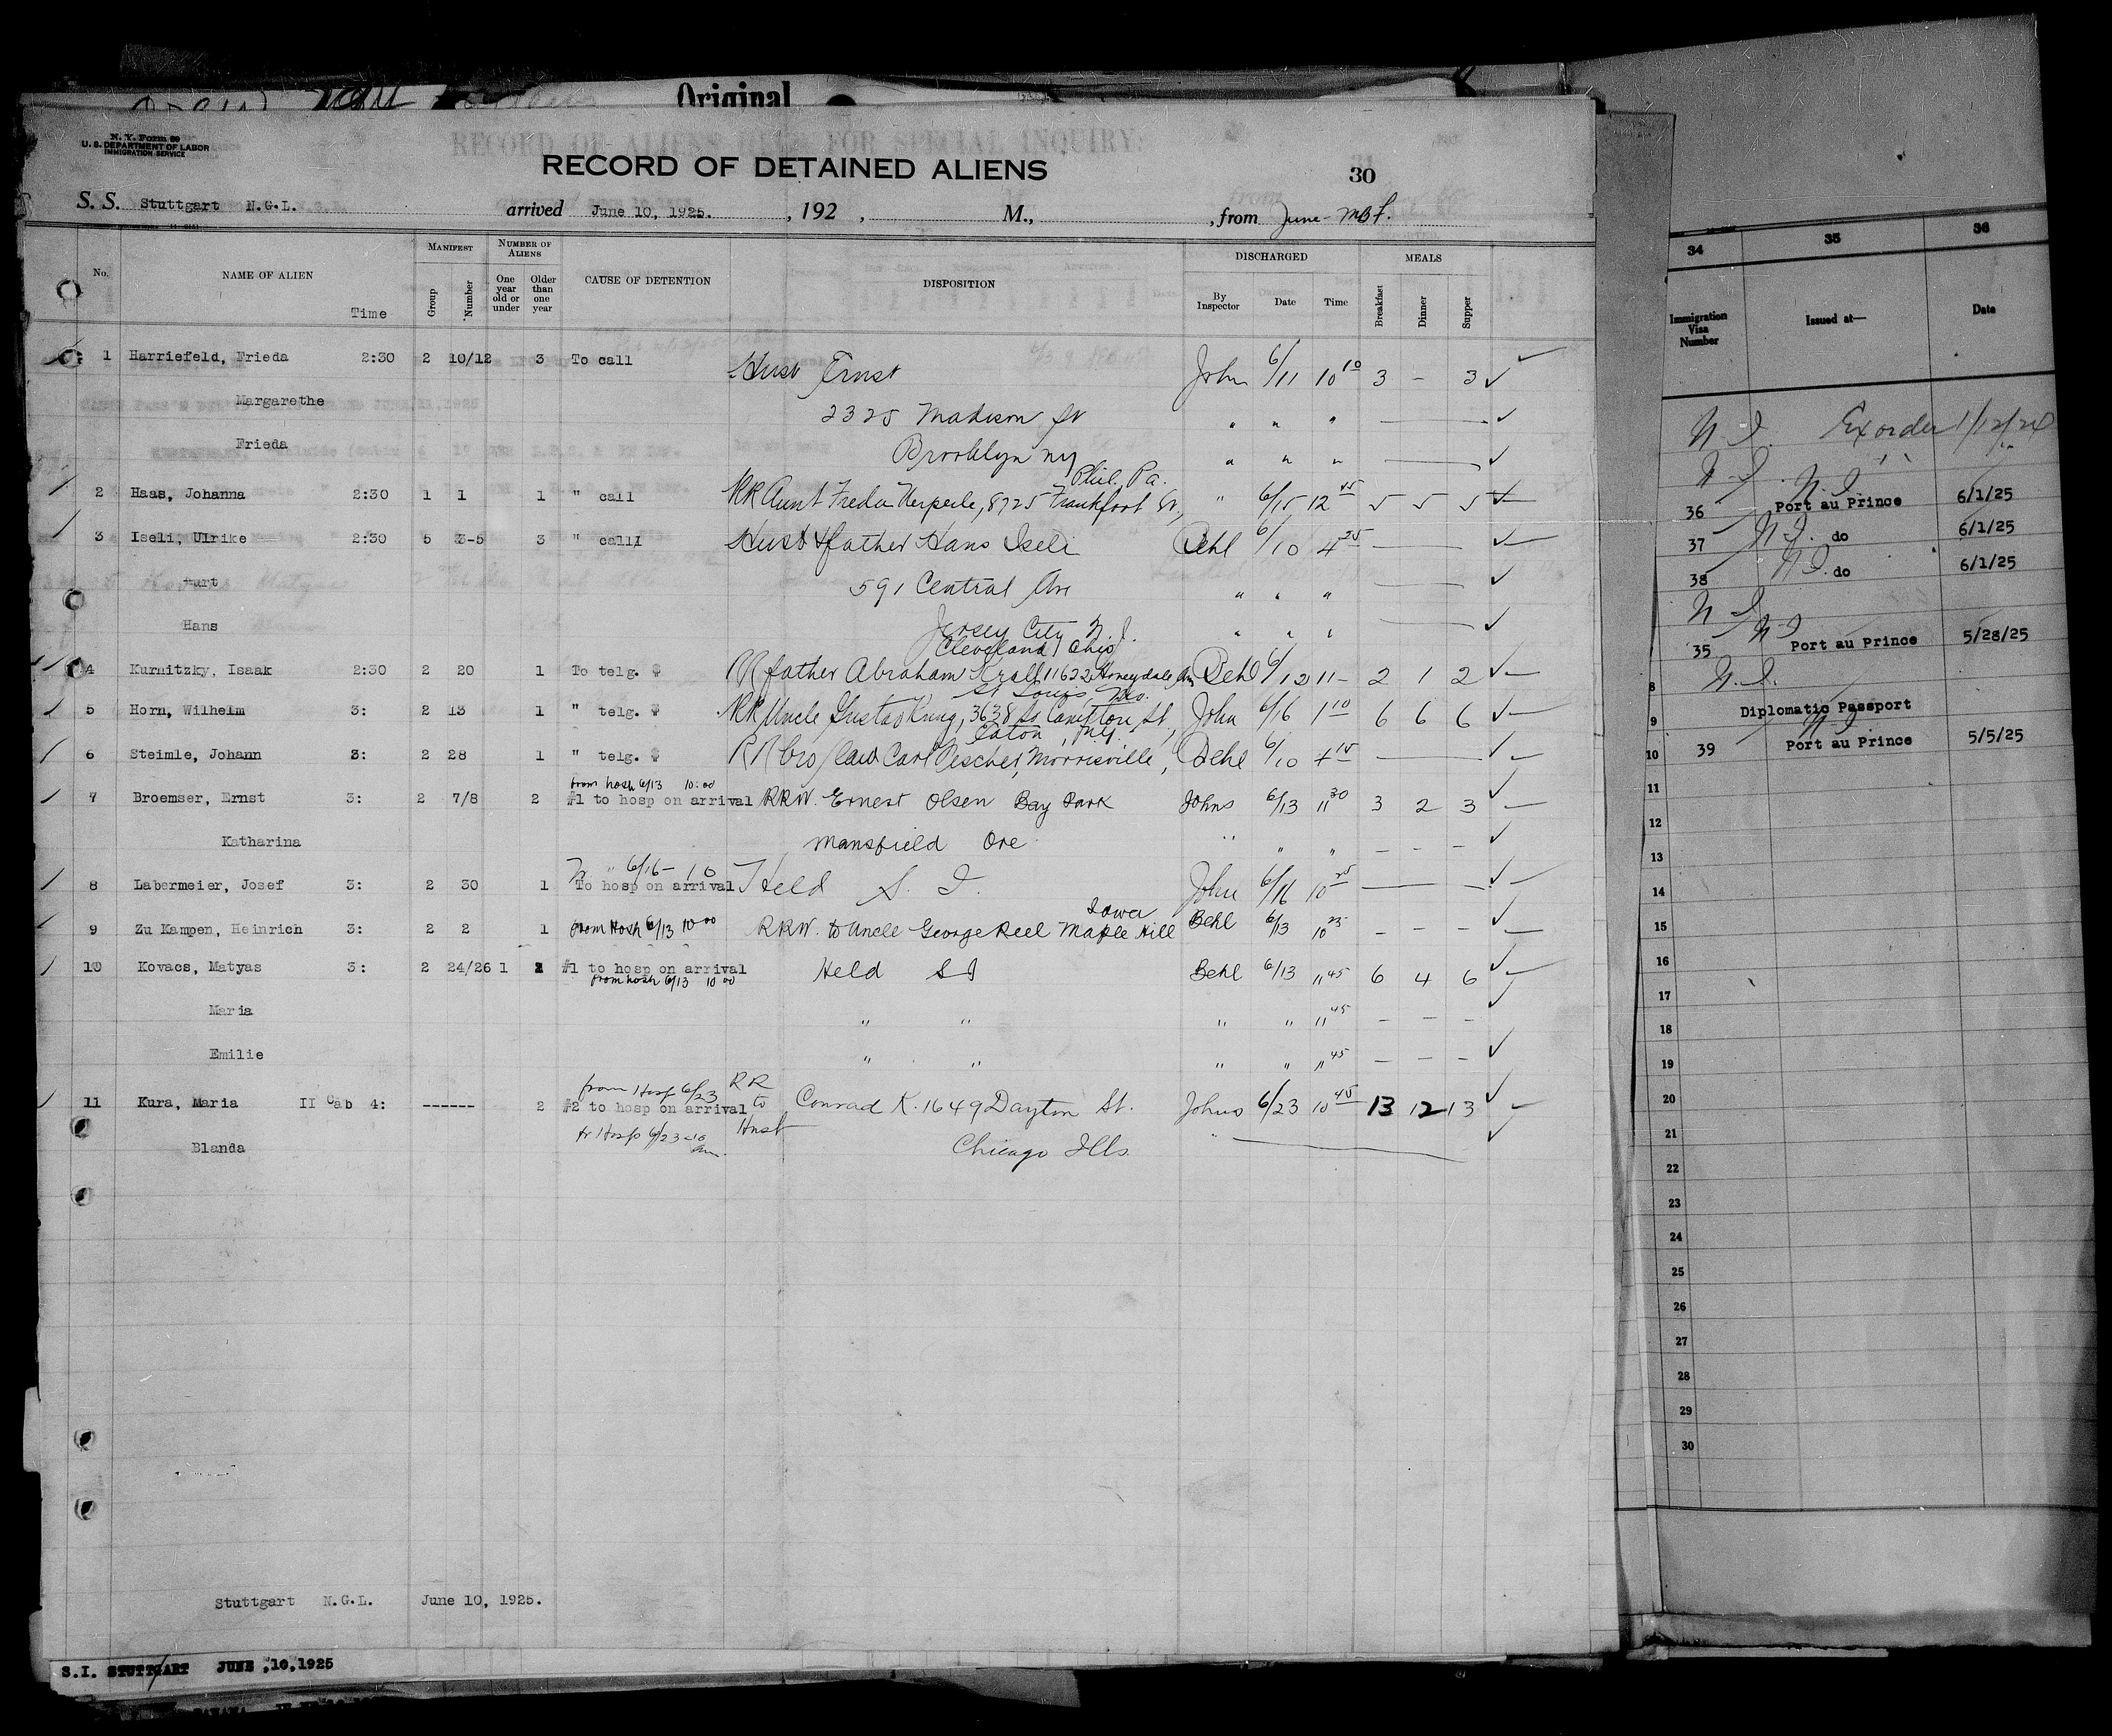 Original
N. Y. Form 99
U. S. DEPARTMENT OF LABOR
IMMIGRATION SERVICE
RECORD OF ALIENS HELD FOR SPECIAL INQUIRY
RECORD OF DETAINED ALIENS
31
30
S. S. Stuttgart N.G.L. arrived June 10, 1925. , 192 , M., , from June
No. NAME OF ALIEN Time MANIFEST Group Number NUMBER OF ALIENS One year old or under Older than one year CAUSE OF DETENTION DISPOSITION DISCHARGED By Inspector Date Time MEALS Breakfast Dinner Supper
1 Harriefeld, Frieda 2:30 2 10/12 3 To call Husb Ernst John 6/11 10 10 3 – 3 ✓
Margarethe 2325 Madison St " " " — ✓
Frieda Brooklyn ny " " " — ✓
Phil. Pa.
2 Haas, Johanna 2:30 1 1 1 " call RR Aunt Freda 8725 Frankfort " 6/15 12 45 5 5 5 ✓
3 Iseli, Ulrike 2:30 5 3-5 3 " call Husb & father Hans Iseli Behl 6/10 4 25 — ✓
Kurt 591 Central Ave " " " — ✓
Hans Jersey City N.J. " " " — ✓
Cleveland Ohio
4 Kurnitzky, Isaak 2:30 2 20 1 To telg. RR father Abraham Krall 11622 Honeydale Av Behl 6/12 11 – 2 1 2 ✓
St Louis, Mo.
5 Horn, Wilhelm 3: 2 13 1 " telg. RR Uncle Gustav 3638 So St, John 6/16 1 10 6 6 6 ✓
6 Steimle, Johann 3: 2 28 1 " telg. RR bro/law Carl Morrisville, Behl 6/10 4 15 — ✓
from hosp 6/13 10:00
7 Broemser, Ernst 3: 2 7/8 2 #1 to hosp on arrival RRW. Ernest Olsen Bay Park Johns 6/13 11 30 3 2 3 ✓
Katharina Mansfield Ore " " " – – – ✓
" 6/16 – 10
8 Labermeier, Josef 3: 2 30 1 To hosp on arrival Held S. I. John 6/16 10 25 — ✓
Iowa
9 Zu Kampen, Heinrich 3: 2 2 1 from Hosp 6/13 10 00 RRW. to Uncle George Reel Maple Hill Behl 6/13 10 25 – – – ✓
10 Kovacs, Matyas 3: 2 24/26 1 2 #1 to hosp on arrival Held SI Behl 6/13 11 45 6 4 6 ✓
from hosp 6/13 10 00
Maria " " " " 11 45 – – – ✓
Emilie " " " " 11 45 – – – ✓
from Hosp 6/23 RR
11 Kura, Maria II Cab 4: ------ 2 #2 to hosp on arrival to Conrad K. 1649 Dayton St. Johns 6/23 10 45 13 12 13 ✓
Hosp 6/23 – 10 am. Husb
Blanda Chicago Ills. " — ✓
Stuttgart N.G.L. June 10, 1925.
S.I. STUTTGART JUNE ,10,1925
34 35 36
Immigration Visa Number Issued at— Date
N.I. Ex order 1/12/24
N.I.
36 N.I. Port au Prince 6/1/25
37 N.I. do 6/1/25
38 N.I. do 6/1/25
N.I.
35 N.I. Port au Prince 5/28/25
8 N.I.
9 Diplomatic Passport
10 39 N.I. Port au Prince 5/5/25
11
12
13
14
15
16
17
18
19
20
21
22
23
24
25
26
27
28
29
30